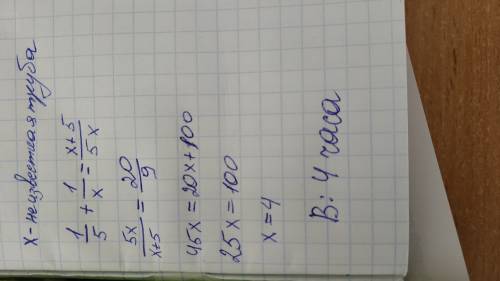 x - неизвестная труба
1/5 + 1/x = x+5/5x
5x/x+5 = 20/9
45x = 20x+100
25x = 100
x = 4
В: 4 часа